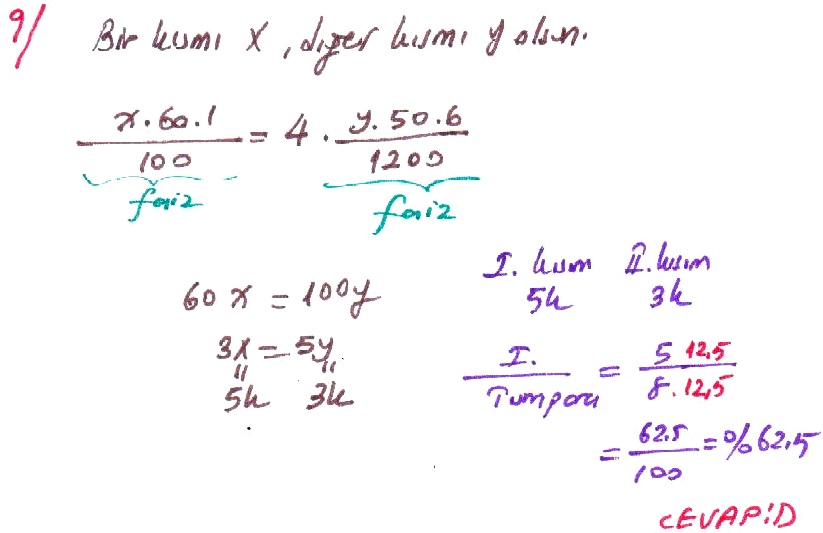 9/ Bir kısmı x, diğer kısmı y olsun.
x.60.1/100 = 4 . y.50.6/1200
faiz faiz
60x = 100y
3x = 5y
" "
5k 3k
I. kısım II. kısım
5k 3k
I./Tümpara = 5 12,5/8. 12,5
= 62.5/100 = %62,5
CEVAP:D